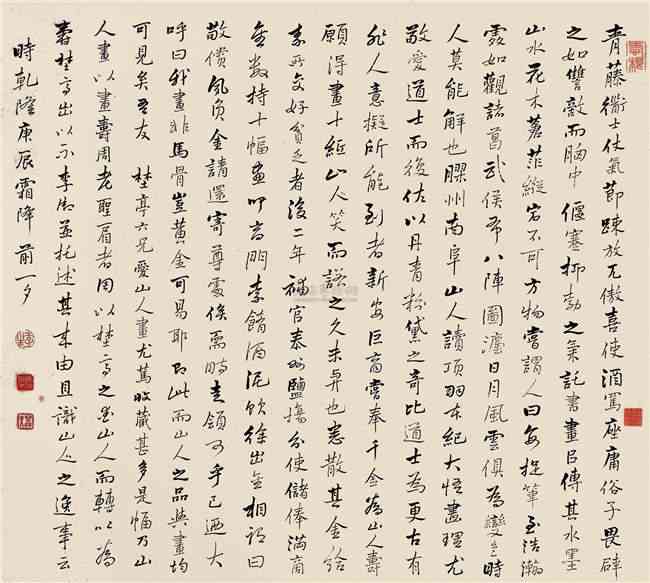 青藤衢士仗氣節踈放兀傲喜使酒罵座庸俗子畏辟
之如讐敵而胸中偃塞抑勃之氣託書畫臣傳其水墨
山水花木蒼菲縱宕不可方物嘗謂人曰每捉筆至浩瀚
處如觀諸葛武侯布八陣圖瀍日月風雲俱為變色時
人莫能解也膠州南阜山人讀項羽本紀大悟畫理尤
敬愛道士而復佐以丹青粉黛之奇比道士為更古有
非人意擬所能到者新安巨商嘗奉千金為山人壽
願得畫十紙山人笑而諾之久未與也悉散其金給
素所交好貧乏者後二年補官泰州鹽場分使儲俸滿商
金數持十幅画叩高門李餚酒泥飲徐出金相謂曰
敬償夙負金請還寄尊處俟需時走領可乎已迺大
呼曰我畫非馬骨豈黃金可易耶即此而山人之品與畫均
可見矣吾友 埜亭六兄愛山人畫尤篤收藏甚多是幅乃山
人畫以畫壽周老聖眉者周以埜亭之愛山人而轉以為
壽埜亭出以示李御並托述其來由且識山人之逸事云
時乾隆庚辰霜降前一夕